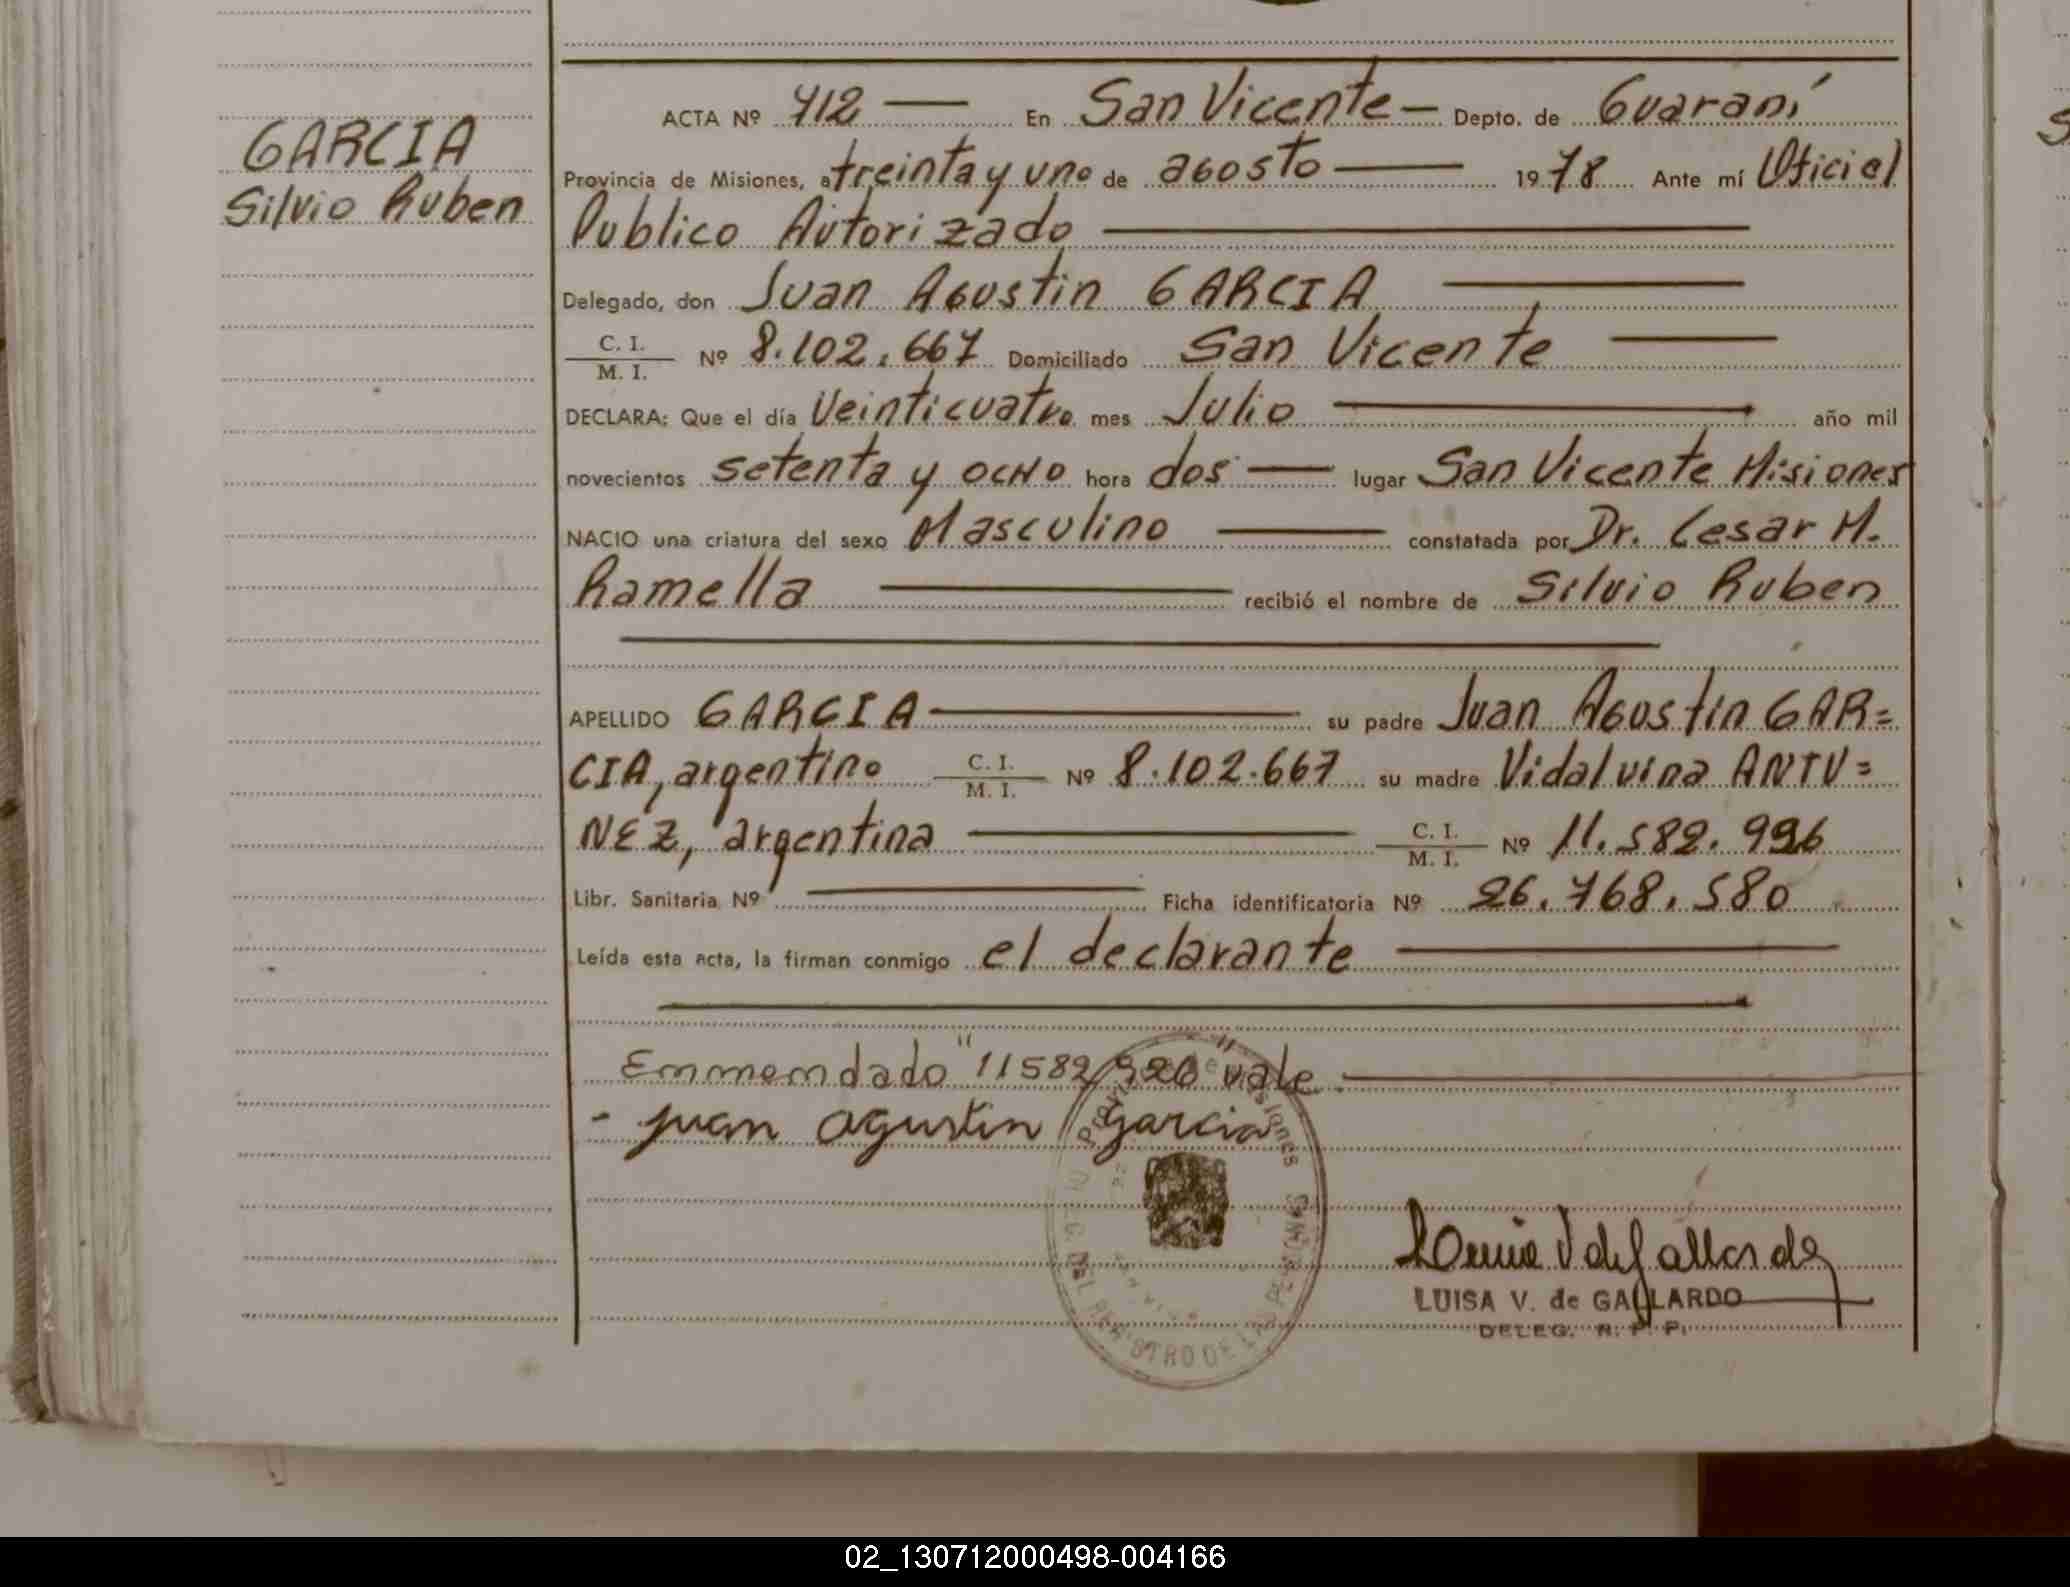 GARCIA
Silvio Ruben
ACTA Nº 712 En San Vicente Depto. de Guaraní
Provincia de Misiones, a treinta y uno de agosto 1978 Ante mí Oficial
Publico Autorizado
Delegado, don Juan Agustin GARCIA
C. I.
M. I. Nº 8.102.667 Domiciliado San Vicente
DECLARA: Que el día Veinticuatro mes Julio año mil
novecientos setenta y ocho hora dos lugar San Vicente Misiones
NACIO una criatura del sexo Masculino constatada por Dr. Cesar M.
Ramella recibió el nombre de Silvio Ruben
APELLIDO GARCIA su padre Juan Agustin GAR=
CIA, argentino C. I. M. I. Nº 8.102.667 su madre Vidalvina ANTU=
NEZ, argentina C. I. M. I. Nº 11.582.
Libr. Sanitaria Nº Ficha identificatoria Nº 26.768.580
Leída esta acta, la firman conmigo el declarante
Emmendado "11582 " vale
- Juan Agustin Garcia
Provincia de Misiones
DELEG. DEL REGISTRO DE LAS PERSONAS
Luisa V de Gallardo
LUISA V. de GALLARDO
DELEG. R. P. P.
02_130712000498-004166